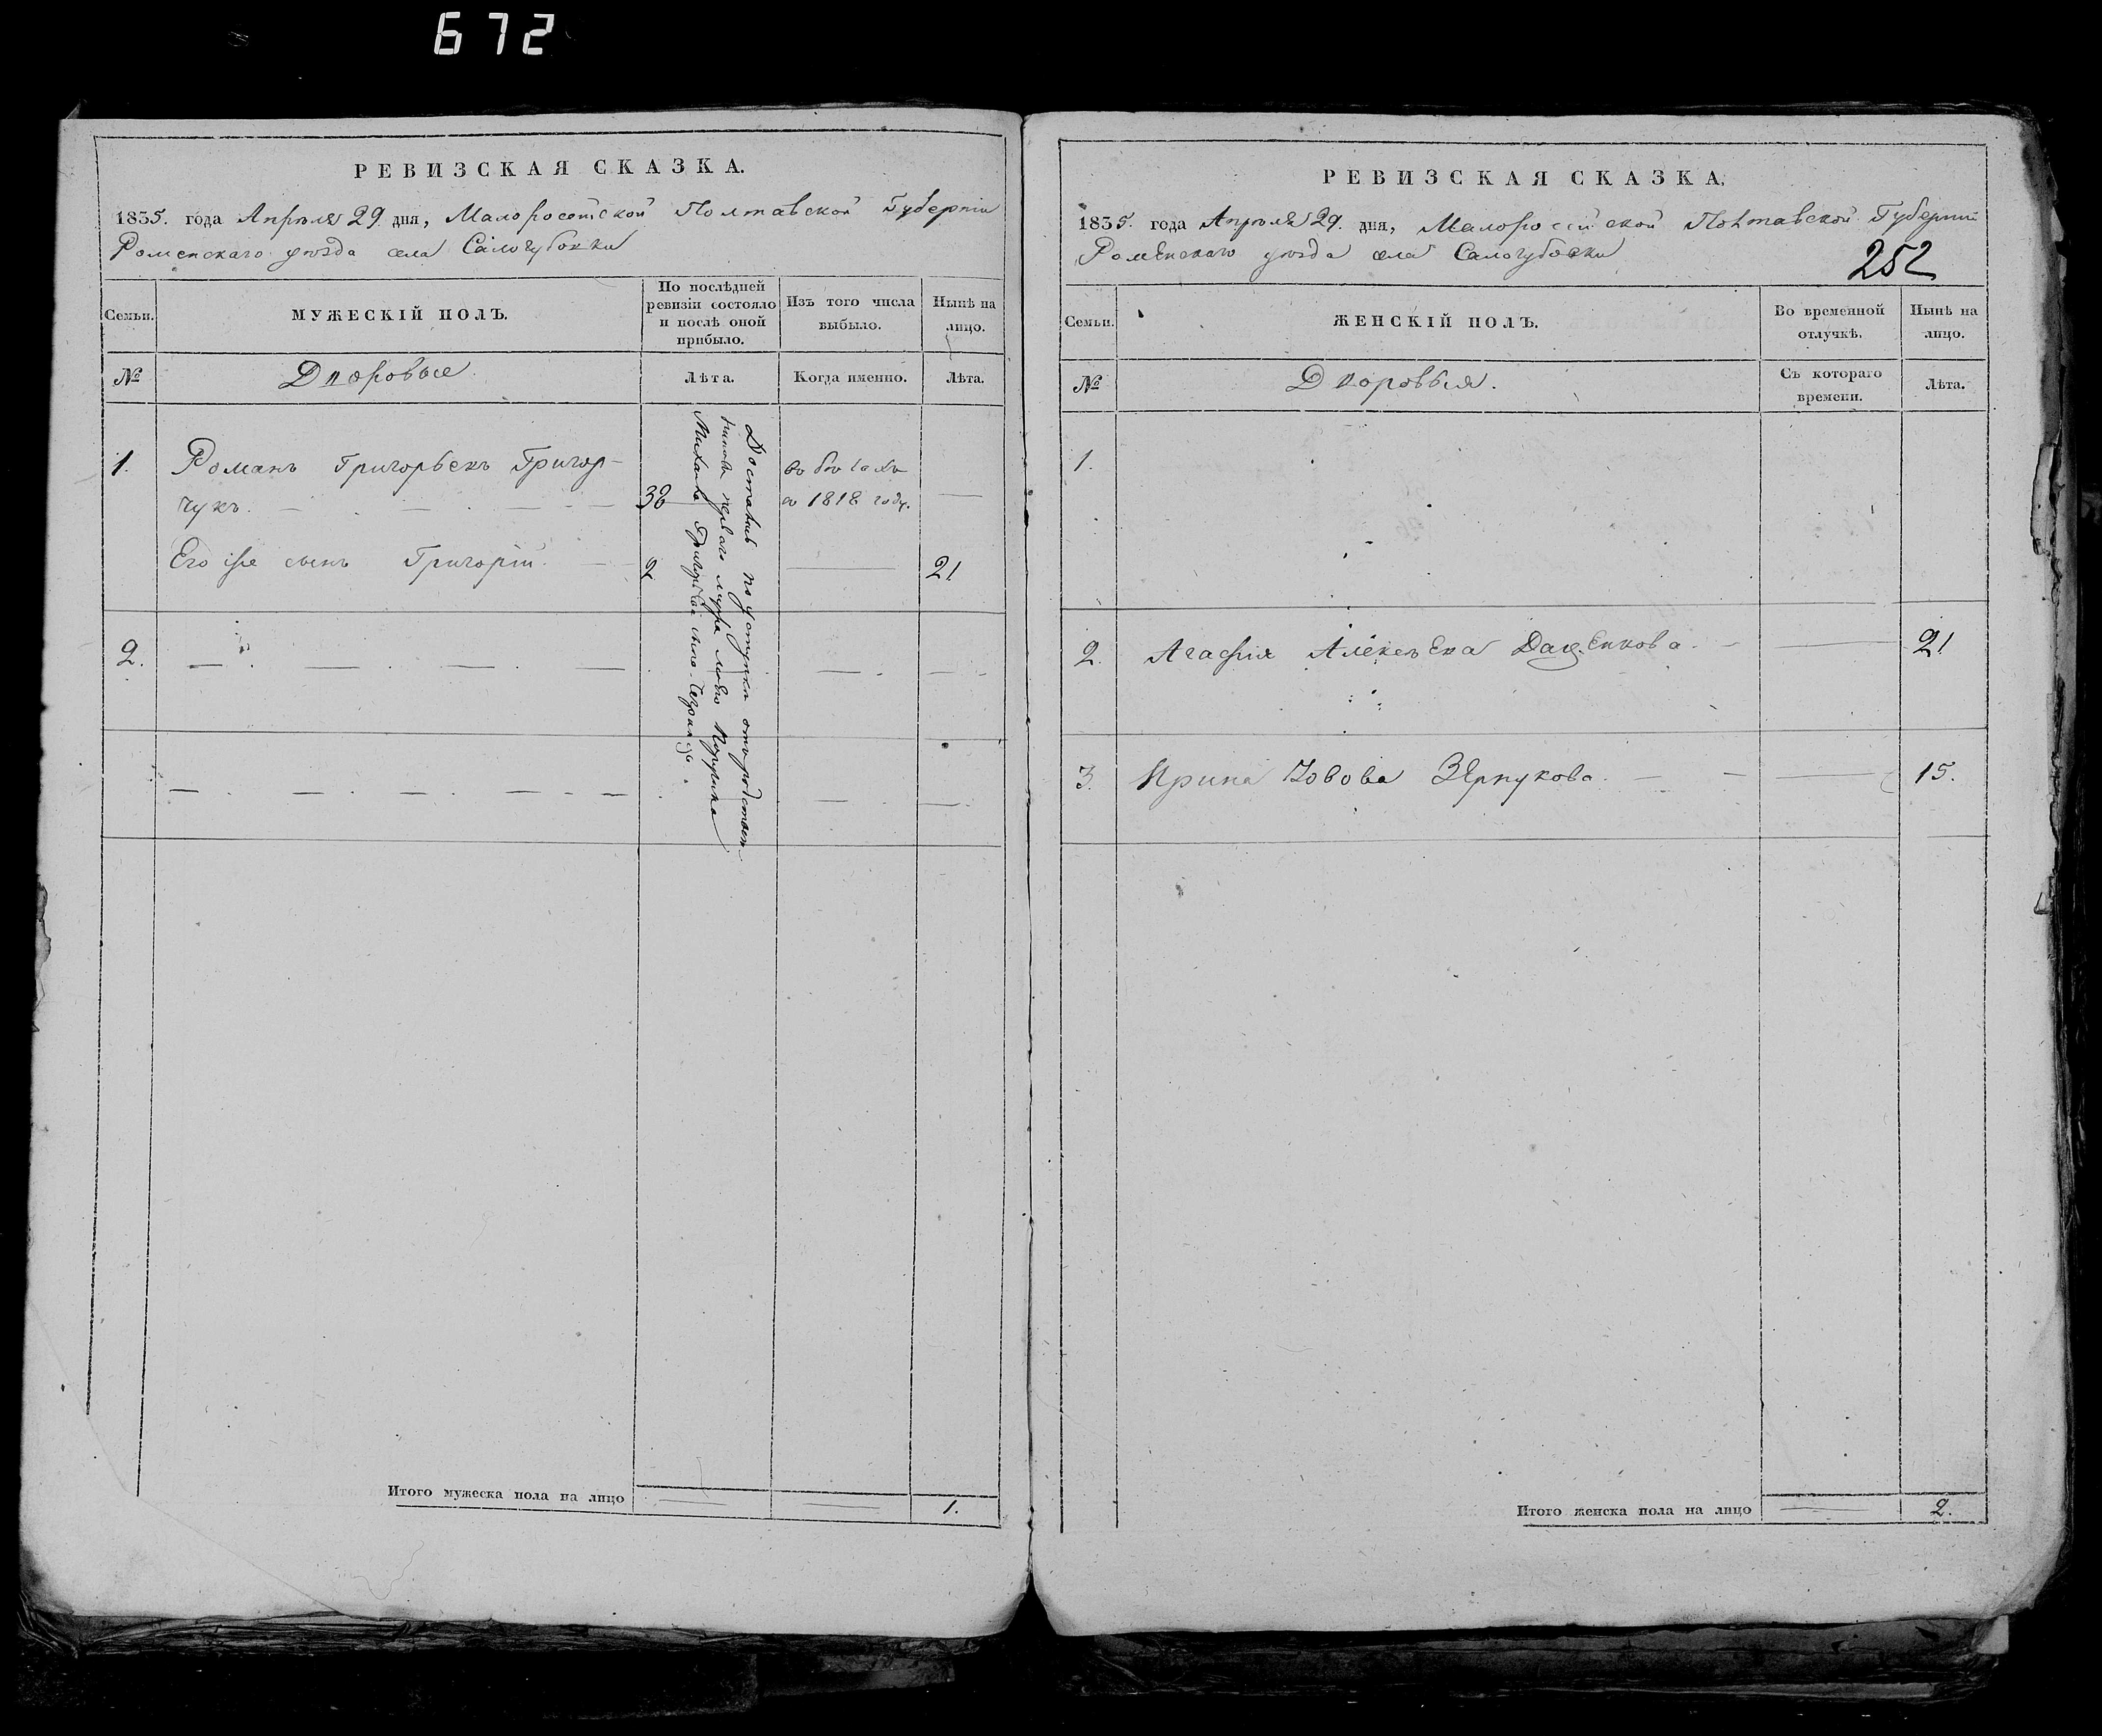 672
РЕВИЗСКАЯ СКАЗКА.
1835. года Апреля 29. дня, Малоросійской Полтавской Губерніи
Роменскаго уезда села Салогубовки
Семьи.
МУЖЕСКІЙ ПОЛЪ.
По послѣдней ревизіи состояло и послѣ оной прибыло.
Изъ того числа выбыло.
Нынѣ на лицо.
№
Дворовые
Лѣта.
Когда именно.
Лѣта.
1. Романъ Григорьевъ Григор-
чукъ. 38 въ бегахъ
въ 1818 году.
Его же сынъ Григорій. 2 21
Достались по уступки отъ родствен-
никовъ
Михаила
2.
Итого мужеска пола на лицо 1.
РЕВИЗСКАЯ СКАЗКА.
1835. года Апреля 29. дня, Малоросійской Полтавской Губерніи
Роменскаго уезда села Салогубовки
252
Семьи.
ЖЕНСКІЙ ПОЛЪ.
Во временной отлучкѣ.
Нынѣ на лицо.
№
Дворовыя.
Съ котораго времени.
Лѣта.
1.
2. Агафія Алексѣева Дащенкова. 21
3. Ирина Іовова 15.
Итого женска пола на лицо 2.